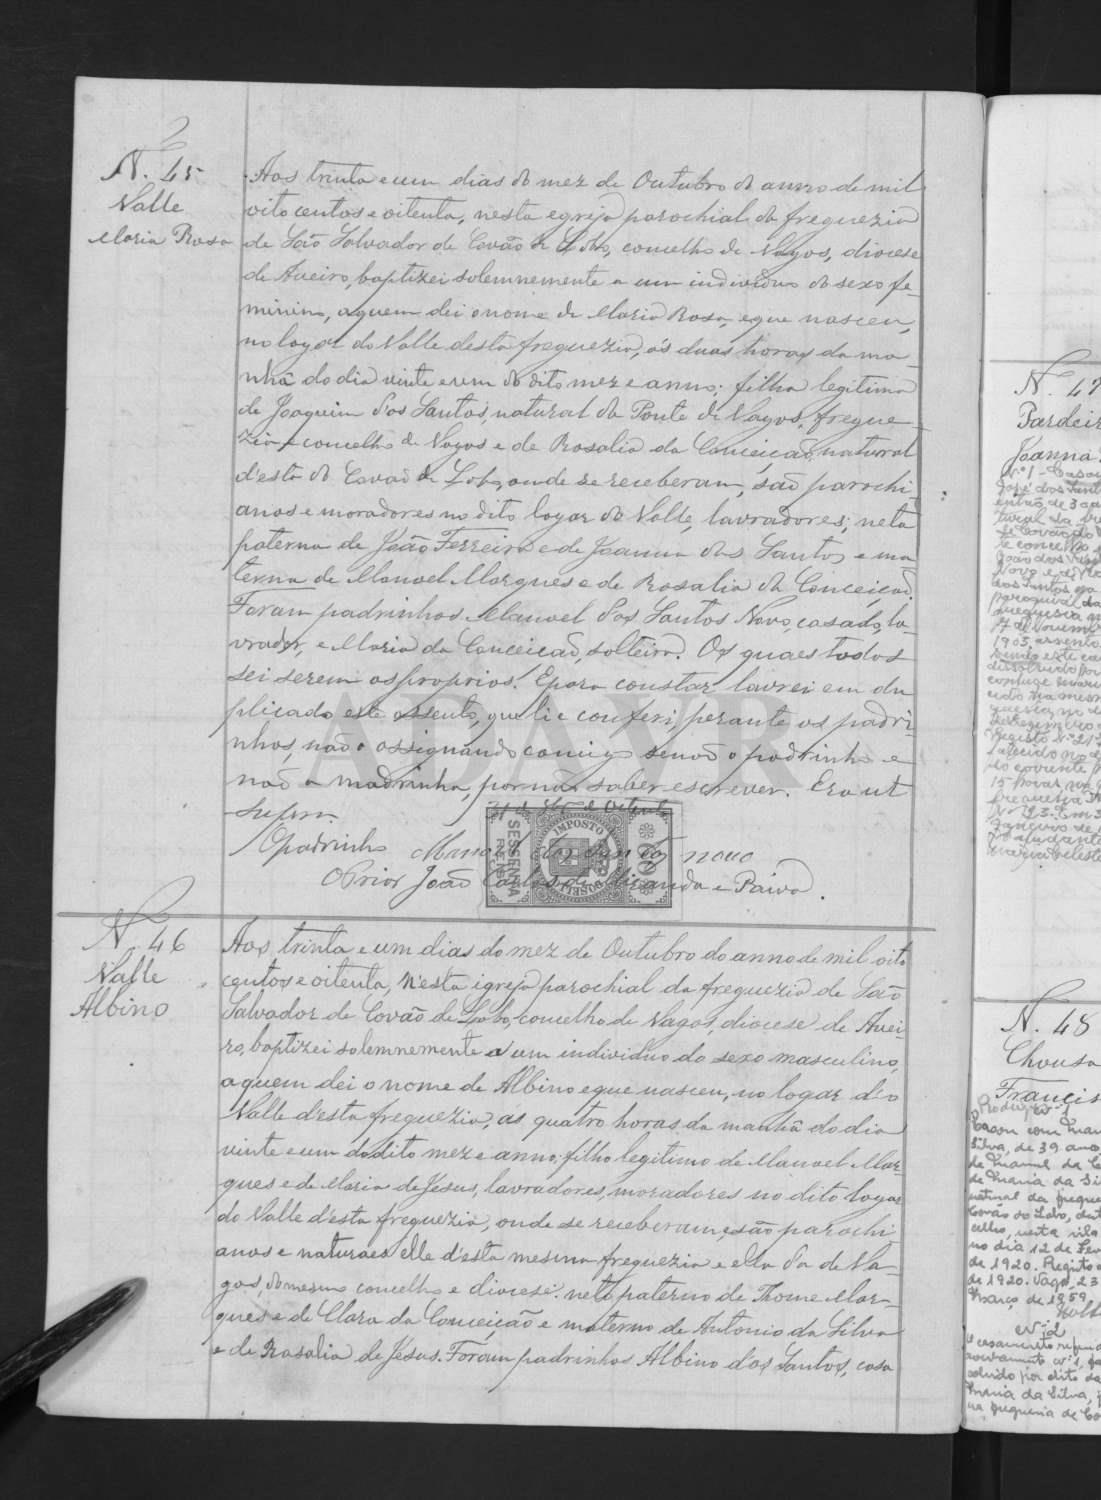 N. 45
Valle
Maria Rosa
Aos trinta e um dias do mez de Outubro do anno de mil
oito centos e oitenta, nesta egreja parochial da freguezia
de São Salvador de Covão de Lobo, concelho de Vagos, diocese
de Aveiro, baptizei solemnemente a um individuo do sexo fe-
minino, a quem dei o nome de Maria Rosa, e que nasceu,
no logar do Valle desta freguezia, ás duas horas da ma-
nhã do dia vinte e um do dito mez e anno; filha legitima
de Joaquim dos Santos, natural da Ponte de Vagos, fregue-
zia e concelho de Vagos e de Rosalia da Conceição, natural
d'esta de Covão de Lobo, onde se receberam, são parochi-
anos e moradores no dito logar do Valle, lavradores; neta
paterna de João Ferreira e de Joanna dos Santos e ma-
terna de Manoel Marques e de Rosalia da Conceição.
Foram padrinhos Manoel dos Santos Novo, casado, la-
vrador, e Maria da Conceicão, solteira. Os quaes todos
sei serem os proprios. E para constar lavrei em du-
plicado este assento, que li e conferi, perante os padri-
nhos, não o assignando comigo senão o padrinho e
não a madrinha, por não saber escrever. Era ut
supra.
O padrinho Manoel dos Santos novo
O Prior João Carlos de Miranda e Paiva.
IMPOSTO
SESSENTA
REIS
60
ADAVR
N. 46
Valle
Albino
Aos trinta e um dias do mez de Outubro do anno de mil oito
centos e oitenta, n'esta igreja parochial da freguezia de São
Salvador de Covão de Lobo, concelho de Vagos, diocese de Avei-
ro, baptizei solemnemente a um individuo do sexo masculino,
a quem dei o nome de Albino e que nasceu, no logar do
Valle d'esta freguezia, as quatro horas da manhã do dia
vinte e um do dito mez e anno; filho legitimo de Manoel Mar-
ques e de Maria de Jesus, lavradores, moradores no dito logar
do Valle d'esta freguezia, onde se receberam, e são parochi-
anos e naturaes elle d'esta mesma freguezia e ella da de Va-
gos, do mesmo concelho e diocese. neto paterno de Thome Mar-
ques e de Clara da Conceição e materno de Antonio da Silva
e de Rosalia de Jesus. Foram padrinhos Albino dos Santos, casa
N. 47
Joanna
N. 48
Chousa